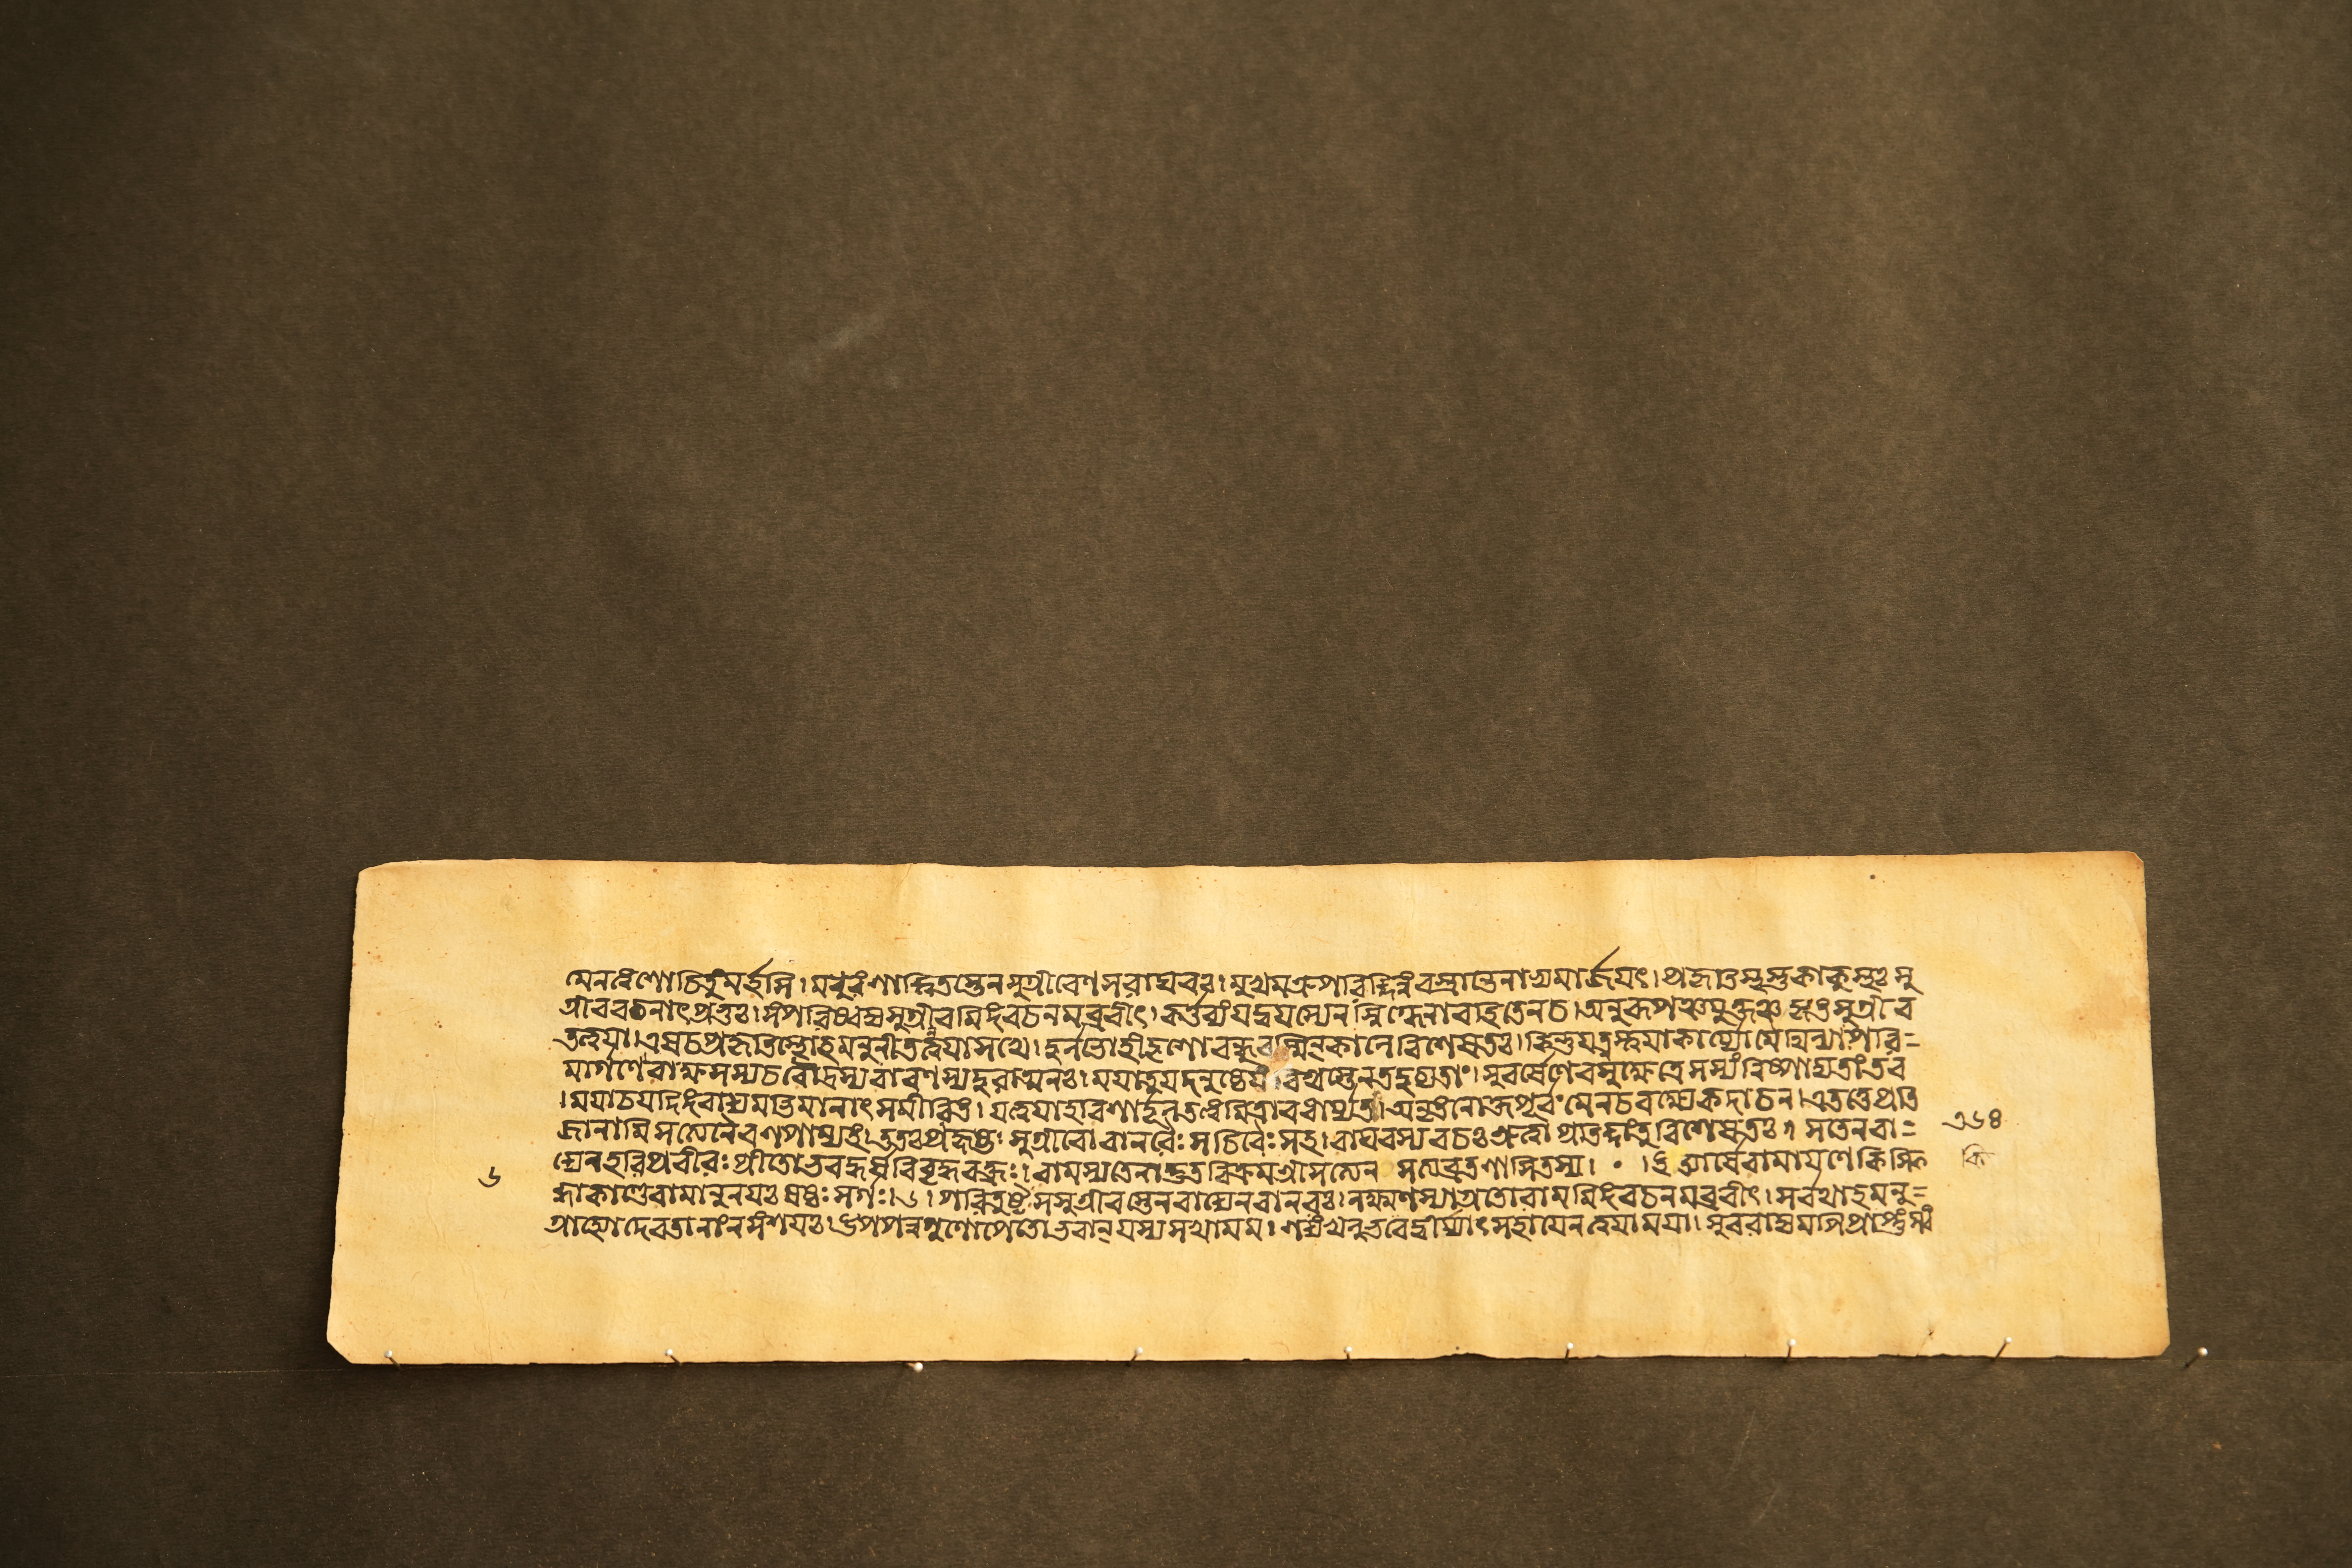 মেনত্বংশোচিতুমর্হসি।মধুরংশান্ত্বিতস্তেনসুগ্রীবেণসরাঘবঃ।মুখমশ্রুপরিক্লিন্নংবস্ত্রান্তেনাভ্যমার্জয়ৎ।প্রকৃতিস্থস্তুকাকুৎস্থঃসু
গ্রীববচনাৎপ্রভুঃ।সংপরিষ্বজ্যসুগ্রীবমিদংবচনমব্রবীৎ।কর্ত্তব্যংযদ্বয়স্যেনস্নিগ্ধেনাবহিতেনচ।অনুরূপঞ্চযুক্তঞ্চকৃতংসুগ্রীব
তত্ত্বয়া।এষচপ্রকৃতিস্থোহমনুনীতস্ত্বয়াসখে।দুর্লভোহীদৃশোবন্ধুরস্মিন্কালেবিশেষতঃ।কিন্তুযত্নস্ত্বয়াকার্য্যোমৈথিল্যাঃপরি=
মার্গণেরাক্ষসস্যচরৌদ্রস্যরাবণস্যদুরাত্মনঃ।ময়াতুযদনুষ্ঠেয়ংবিশ্রব্ধেনতদুচ্যতাং।সুবর্ষেণেবসুক্ষেত্রেসস্যংনিষ্পাদ্যতাংতব
।ময়াচযদিদংবাক্যমভিমানাৎসমীরিতং।যত্ত্বয়াহরিশার্দূলতত্ত্বমিত্যবধার্য্যতাং।অনৃতংনোক্তপূর্বংমেনচবক্ষ্যেকদাচন।এতত্তেপ্রতি
জানামিসত্যেনৈবশপাম্যহং।ততঃপ্রহৃষ্টঃসুগ্রীবোবানরৈঃসচিবৈঃসহ।রাঘবস্যবচঃশ্রুত্বাপ্রতিজ্ঞাংতুবিশেষতঃ।সতেনবা=
২৬৪
ক্যেনহরিপ্রবীরঃপ্রীতোভবদ্ধর্ষবিবৃদ্ধবক্ত্রঃ।রামস্যতেনাদ্ভুতবিক্রমশ্রীসত্যেন সত্যব্রতশালিতস্য। • ।ইত্যার্ষেরামায়ণেকিষ্কি
কি
৬
ন্ধাকাণ্ডেরামানুনয়ঃষষ্ঠঃসর্গঃ।৬।পরিতুষ্টঃসসুগ্রীবস্তেনবাক্যেনবানরঃ।লক্ষ্মণস্যাগ্রতোরামমিদংবচনমব্রবীৎ।সর্বথাহমনু=
গ্রাহ্যোদেবতানাংনসংশয়ঃ।উপপন্নগুণোপেতোভবান্যস্যসখামম।শক্যংখলুভবেদ্বীর্য্যাৎসহায়েনত্বয়াময়া।সুররাজ্যমপিপ্রাপ্তুংস্বং